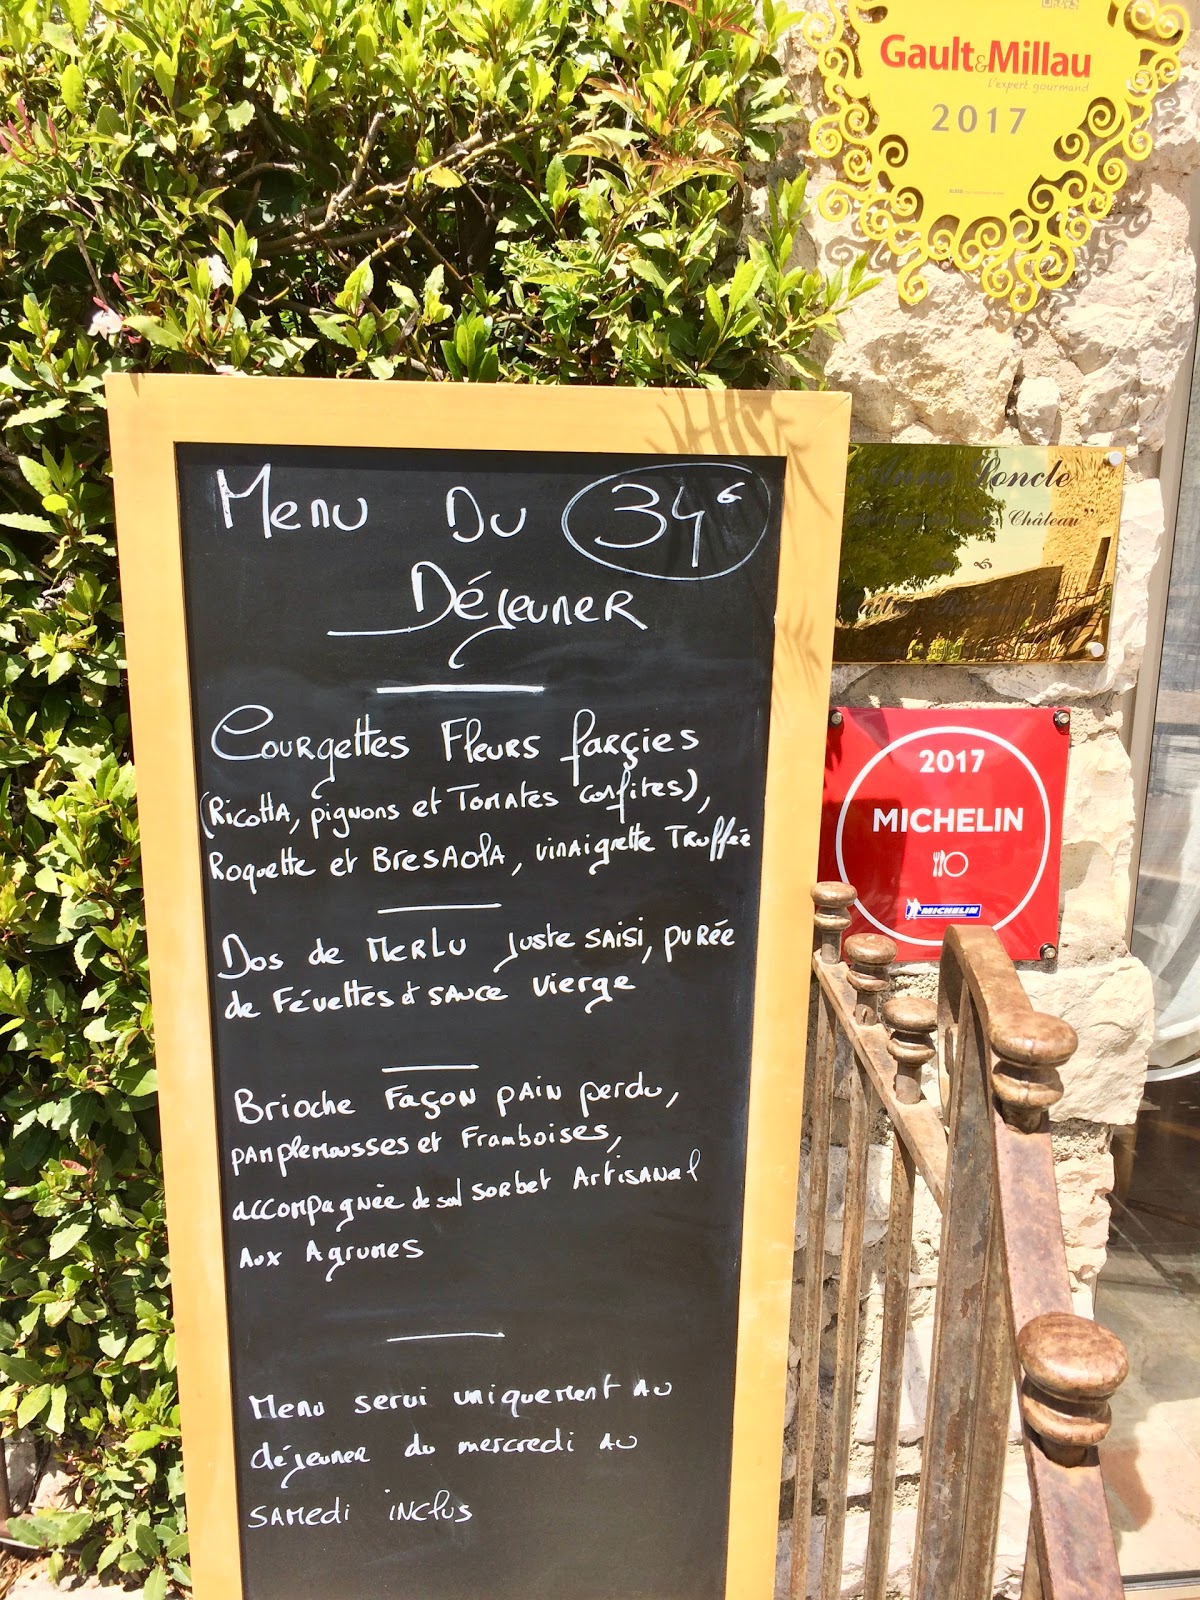 Gault&Millau
l'expert gourmand
2017
Menu Du 34€
Déjeuner
Courgettes Fleurs farçies
(Ricotta, pignons et Tomates confites),
Roquette et Bresaola, vinaigrette Truffée
Dos de Merlu juste saisi, purée
de Févettes et sauce vierge
Brioche Façon pain perdu,
pamplemousses et Framboises,
accompagnée de son sorbet Artisanal
Aux Agrumes
Menu servi uniquement au
déjeuner du mercredi au
samedi inclus
Anne Loncle
Château"
2017
MICHELIN
MICHELIN